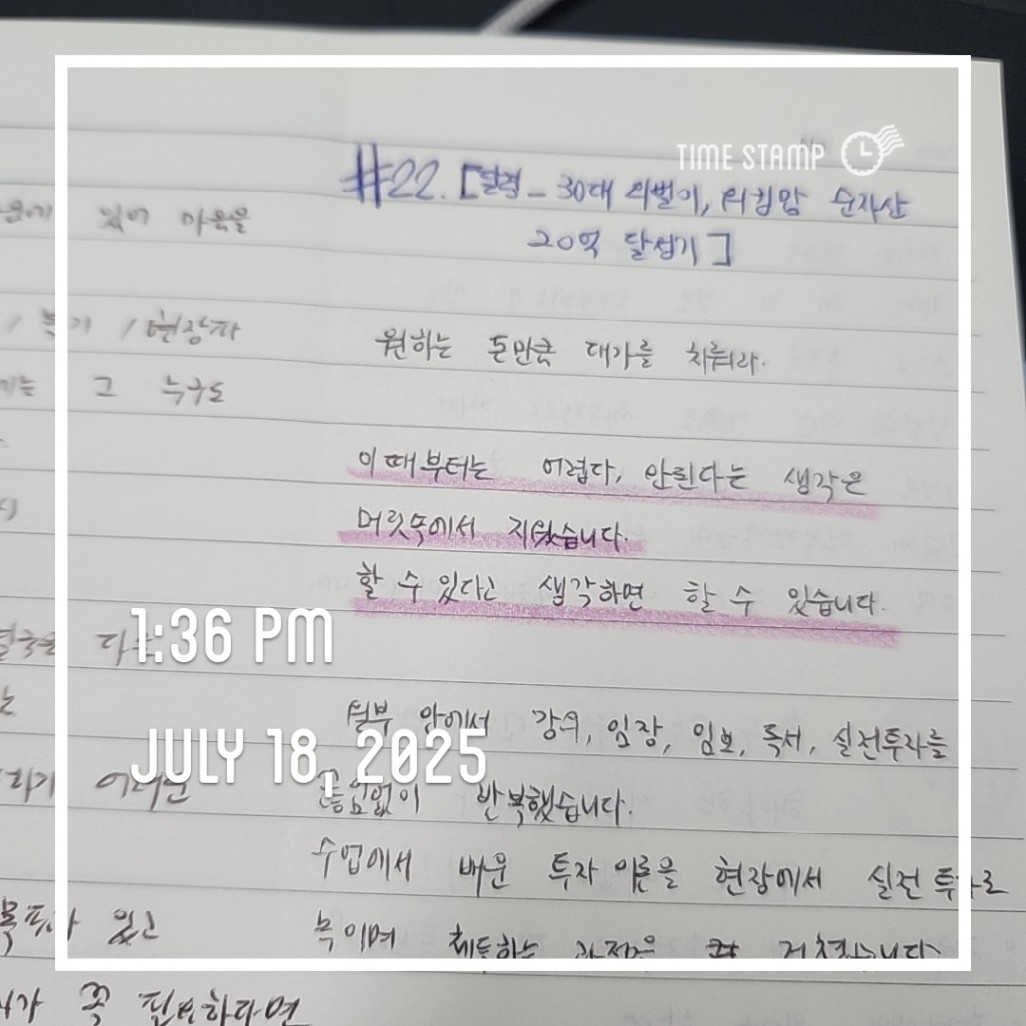 TIME STAMP
#22. [달경 - 30대 외벌이, 워킹맘 순자산
20억 달성기]
원하는 돈만큼 대가를 치뤄라.
이때부터는 어렵다, 안된다는 생각은
머릿속에서 지웠습니다.
할 수 있다고 생각하면 할 수 있습니다.
월부 안에서 강의, 임장, 임보, 독서, 실전투자를
끊임없이 반복했습니다.
수업에서 배운 투자 이론을 현장에서 실전 투자로
녹이며 체득하는 과정을 거쳤습니다
있어 마음을
/ 복기 / 현장자
그 누구도
어려운
있고
꼭 필요하다면
1:36 PM
JULY 18, 2025